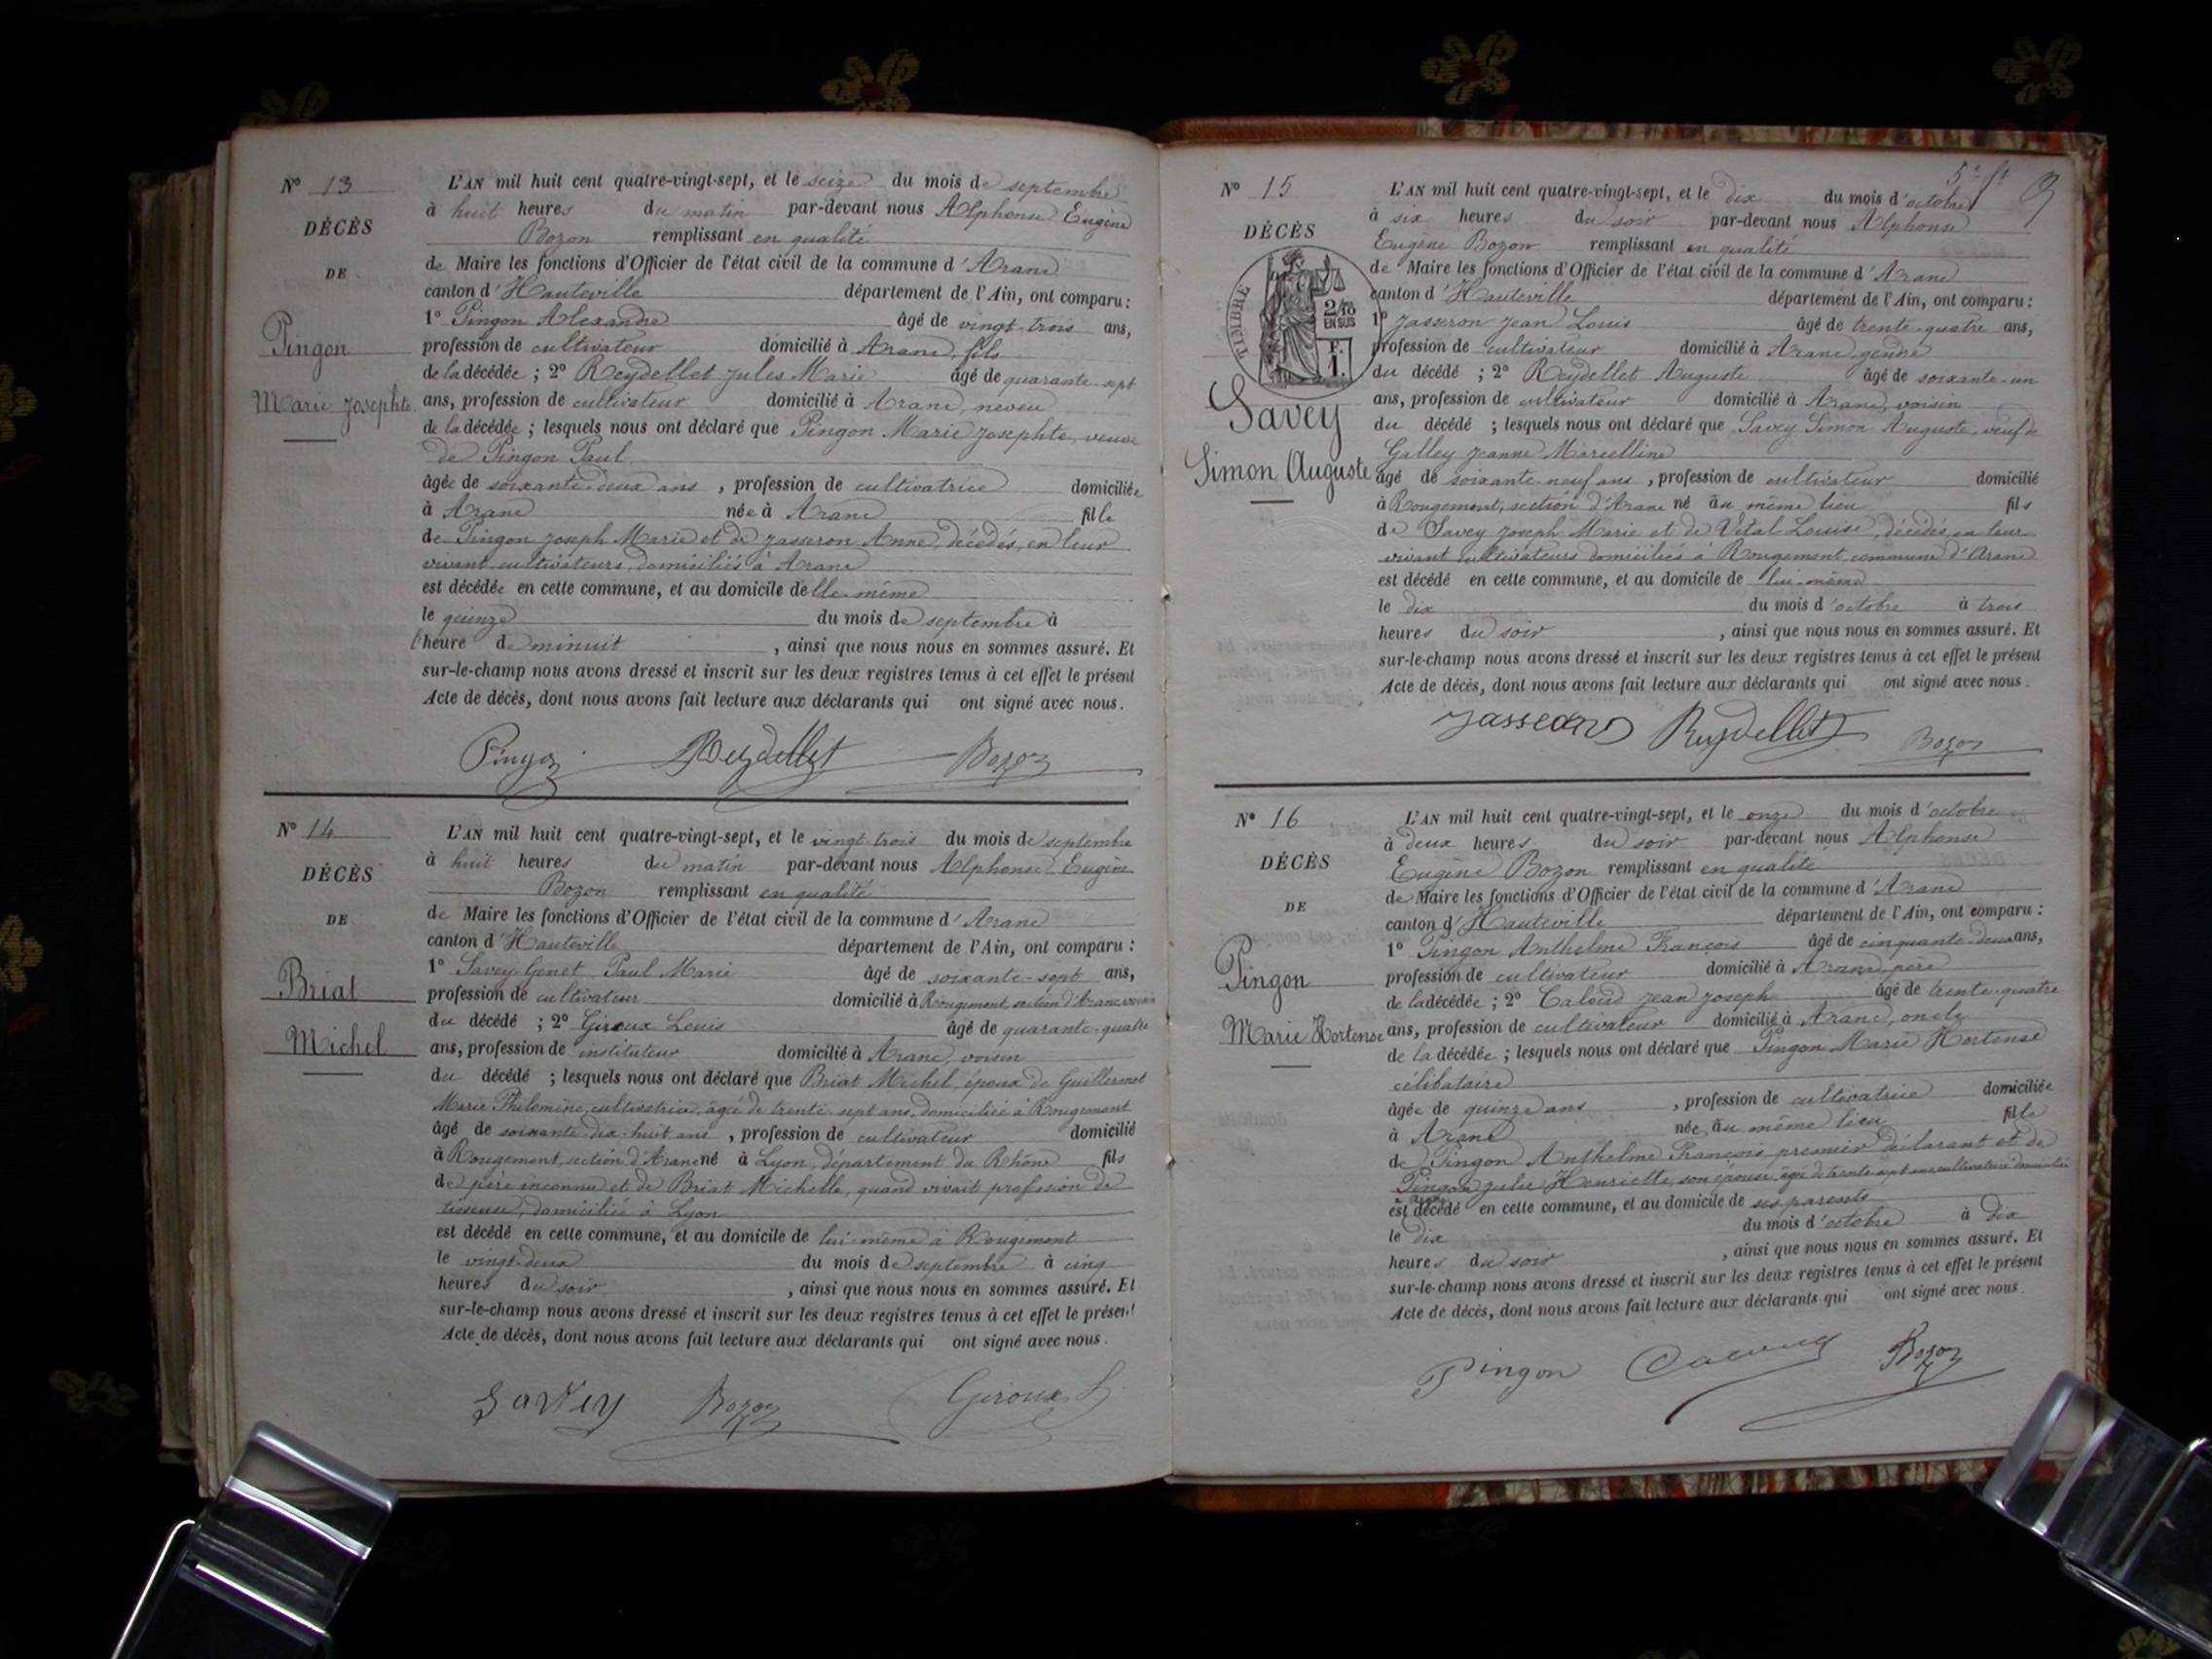 N° 13
DÉCÈS
DE
Pingon
Marie Josephte
L'AN mil huit cent quatre-vingt-sept, et le seize du mois de septembre
à huit heures du matin par-devant nous Alphonse Eugène
Bozon remplissant en qualité
de Maire les fonctions d'Officier de l'état civil de la commune d'Aranc
canton d'Hauteville département de l'Ain, ont comparu :
1° Pingon Alexandre âgé de vingt-trois ans,
profession de cultivateur domicilié à Aranc, fils
de la décédée ; 2° Reydellet Jules Marie âgé de quarante-sept
ans, profession de cultivateur domicilié à Aranc, neveu
de la décédée ; lesquels nous ont déclaré que Pingon Marie Josephte, veuve
de Pingon Paul
âgée de soixante-deux ans, profession de cultivatrice domiciliée
à Aranc née à Aranc fille
de Pingon Joseph Marie et de Jasseron Anne, décédés, en leur
vivant cultivateurs, domiciliés à Aranc
est décédée en cette commune, et au domicile de elle-même
le quinze du mois de septembre à
l'heure de minuit, ainsi que nous nous en sommes assuré. Et
sur-le-champ nous avons dressé et inscrit sur les deux registres tenus à cet effet le présent
Acte de décès, dont nous avons fait lecture aux déclarants qui ont signé avec nous.
Pingon Reydellet Bozon
N° 14
DÉCÈS
DE
Briat
Michel
L'AN mil huit cent quatre-vingt-sept, et le vingt-trois du mois de septembre
à huit heures du matin par-devant nous Alphonse Eugène
Bozon remplissant en qualité
de Maire les fonctions d'Officier de l'état civil de la commune d'Aranc
canton d'Hauteville département de l'Ain, ont comparu :
1° Savey-Genet Paul Marie âgé de soixante-sept ans,
profession de cultivateur domicilié à Rougemont, section d'Aranc voisin
du décédé ; 2° Giroux Louis âgé de quarante-quatre
ans, profession de instituteur domicilié à Aranc, voisin
du décédé ; lesquels nous ont déclaré que Briat Michel, époux de Guillermet
Marie Philomène, cultivatrice, âgée de trente-sept ans, domiciliée à Rougemont
âgé de soixante-dix-huit ans, profession de cultivateur domicilié
à Rougemont, section d'Aranc né à Lyon, département du Rhône fils
de père inconnu et de Briat Michelle, quand vivait profession de
tisseuse, domiciliée à Lyon
est décédé en cette commune, et au domicile de lui-même à Rougemont
le vingt-deux du mois de septembre à cinq
heures du soir, ainsi que nous nous en sommes assuré. Et
sur-le-champ nous avons dressé et inscrit sur les deux registres tenus à cet effet le présent
Acte de décès, dont nous avons fait lecture aux déclarants qui ont signé avec nous.
Savey Bozon Giroux L
5e ft 9
N° 15
DÉCÈS
TIMBRE
2/10
EN SUS
F.
1.
Savey
Simon Auguste
L'AN mil huit cent quatre-vingt-sept, et le dix du mois d'octobre
à six heures du soir par-devant nous Alphonse
Eugène Bozon remplissant en qualité
de Maire les fonctions d'Officier de l'état civil de la commune d'Aranc
canton d'Hauteville département de l'Ain, ont comparu :
1° Jasseron Jean Louis âgé de trente-quatre ans,
profession de cultivateur domicilié à Aranc, gendre
du décédé ; 2° Reydellet Auguste âgé de soixante-un
ans, profession de cultivateur domicilié à Aranc, voisin
du décédé ; lesquels nous ont déclaré que Savey Simon Auguste, veuf de
Galley Jeanne Marcelline
âgé de soixante-neuf ans, profession de cultivateur domicilié
à Rougemont, section d'Aranc né au même lieu fils
de Savey Joseph Marie et de Vital Louise, décédés, en leur
vivant cultivateurs domiciliés à Rougemont, commune d'Aranc
est décédé en cette commune, et au domicile de lui-même
le dix du mois d'octobre à trois
heures du soir, ainsi que nous nous en sommes assuré. Et
sur-le-champ nous avons dressé et inscrit sur les deux registres tenus à cet effet le présent
Acte de décès, dont nous avons fait lecture aux déclarants qui ont signé avec nous.
Jasseron Reydellet Bozon
N° 16
DÉCÈS
DE
Pingon
Marie Hortense
L'AN mil huit cent quatre-vingt-sept, et le onze du mois d'octobre
à deux heures du soir par-devant nous Alphonse
Eugène Bozon remplissant en qualité
de Maire les fonctions d'Officier de l'état civil de la commune d'Aranc
canton d'Hauteville département de l'Ain, ont comparu :
1° Pingon Anthelme François âgé de cinquante-deux ans,
profession de cultivateur domicilié à Aranc, père
de la décédée ; 2° Caloud Jean Joseph âgé de trente-quatre
ans, profession de cultivateur domicilié à Aranc, oncle
de la décédée ; lesquels nous ont déclaré que Pingon Marie Hortense
célibataire
âgée de quinze ans, profession de cultivatrice domiciliée
à Aranc née au même lieu fille
de Pingon Anthelme François premier déclarant et de
Pingon Julie Henriette, son épouse, âgée de trente-sept ans, cultivatrice domiciliée
à Aranc
est décédé en cette commune, et au domicile de ses parents
le dix du mois d'octobre à dix
heures du soir, ainsi que nous nous en sommes assuré. Et
sur-le-champ nous avons dressé et inscrit sur les deux registres tenus à cet effet le présent
Acte de décès, dont nous avons fait lecture aux déclarants qui ont signé avec nous.
Pingon Caloud Bozon